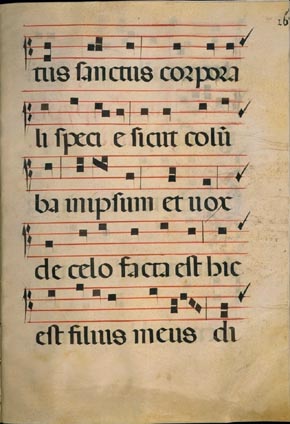 26
tus sanctus corpora
li speci e sicut colū
ba in ipsum et uox
de celo facta est hic
est filius meus di